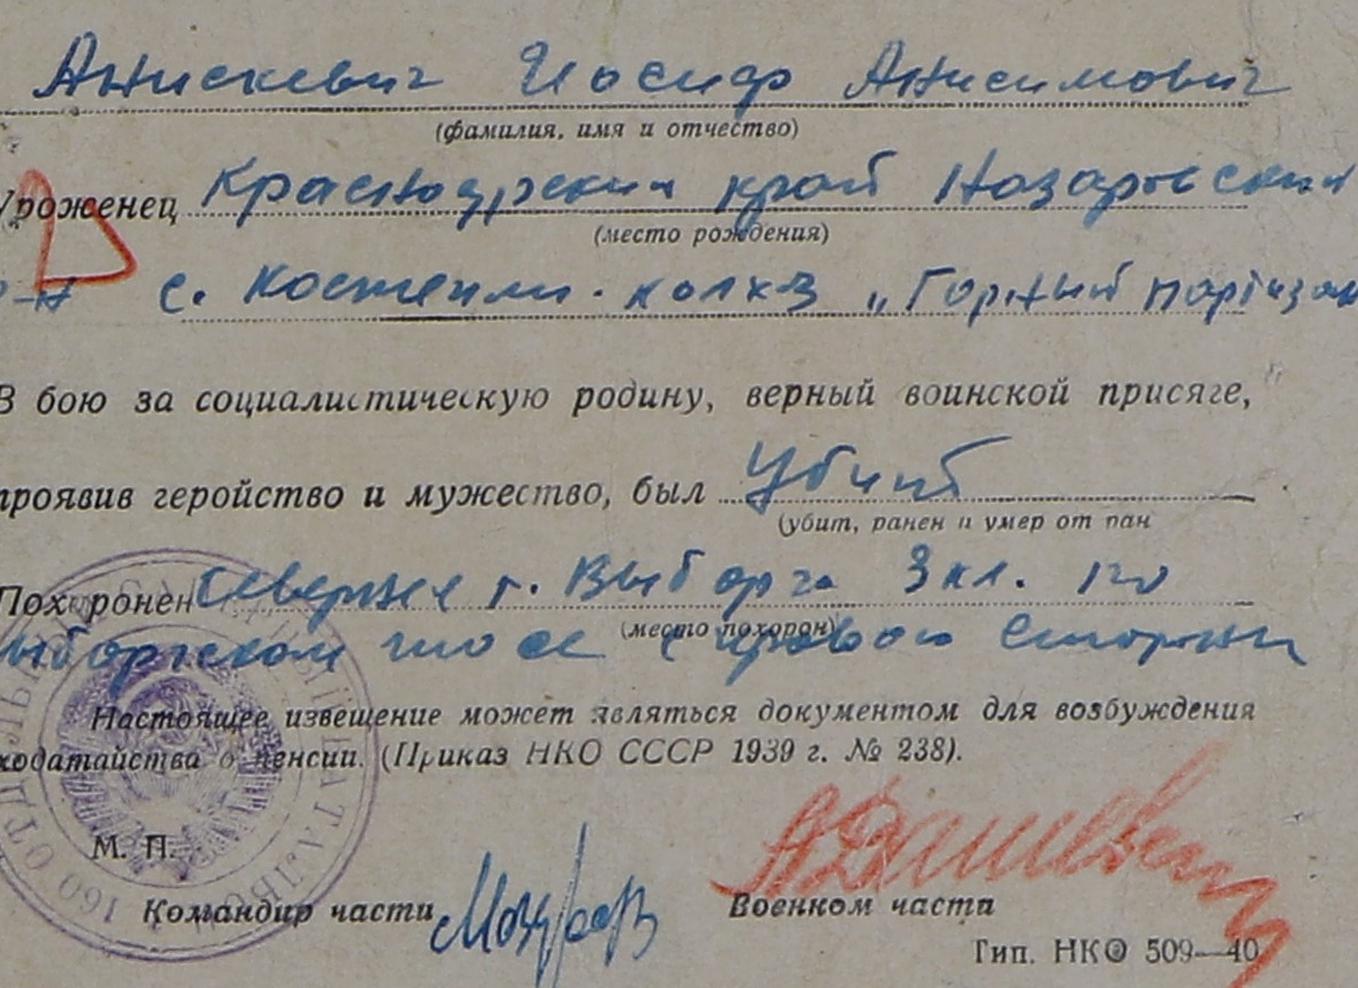 Анискевич Иосиф Анисимович
(фамилия, имя и отчество)
Уроженец Красноярский край Назаровский
(место рождения)
р-н с. колхз „Горный партизан
В бою за социалистическую родину, верный воинской присяге,
проявив геройство и мужество, был Убит
(убит, ранен и умер от ран
Похоронен Севернее г. Выборга 3 кл. по
(место похорон)
Выборгском шоссе с правой стороны
Настоящее извещение может являться документом для возбуждения
ходатайства о пенсии. (Приказ НКО СССР 1939 г. № 238).
М. П.
160 ОТДЕЛЬНЫЙ БАТАЛЬОН
Командир части
Военком части
Тип. НКО 509—40